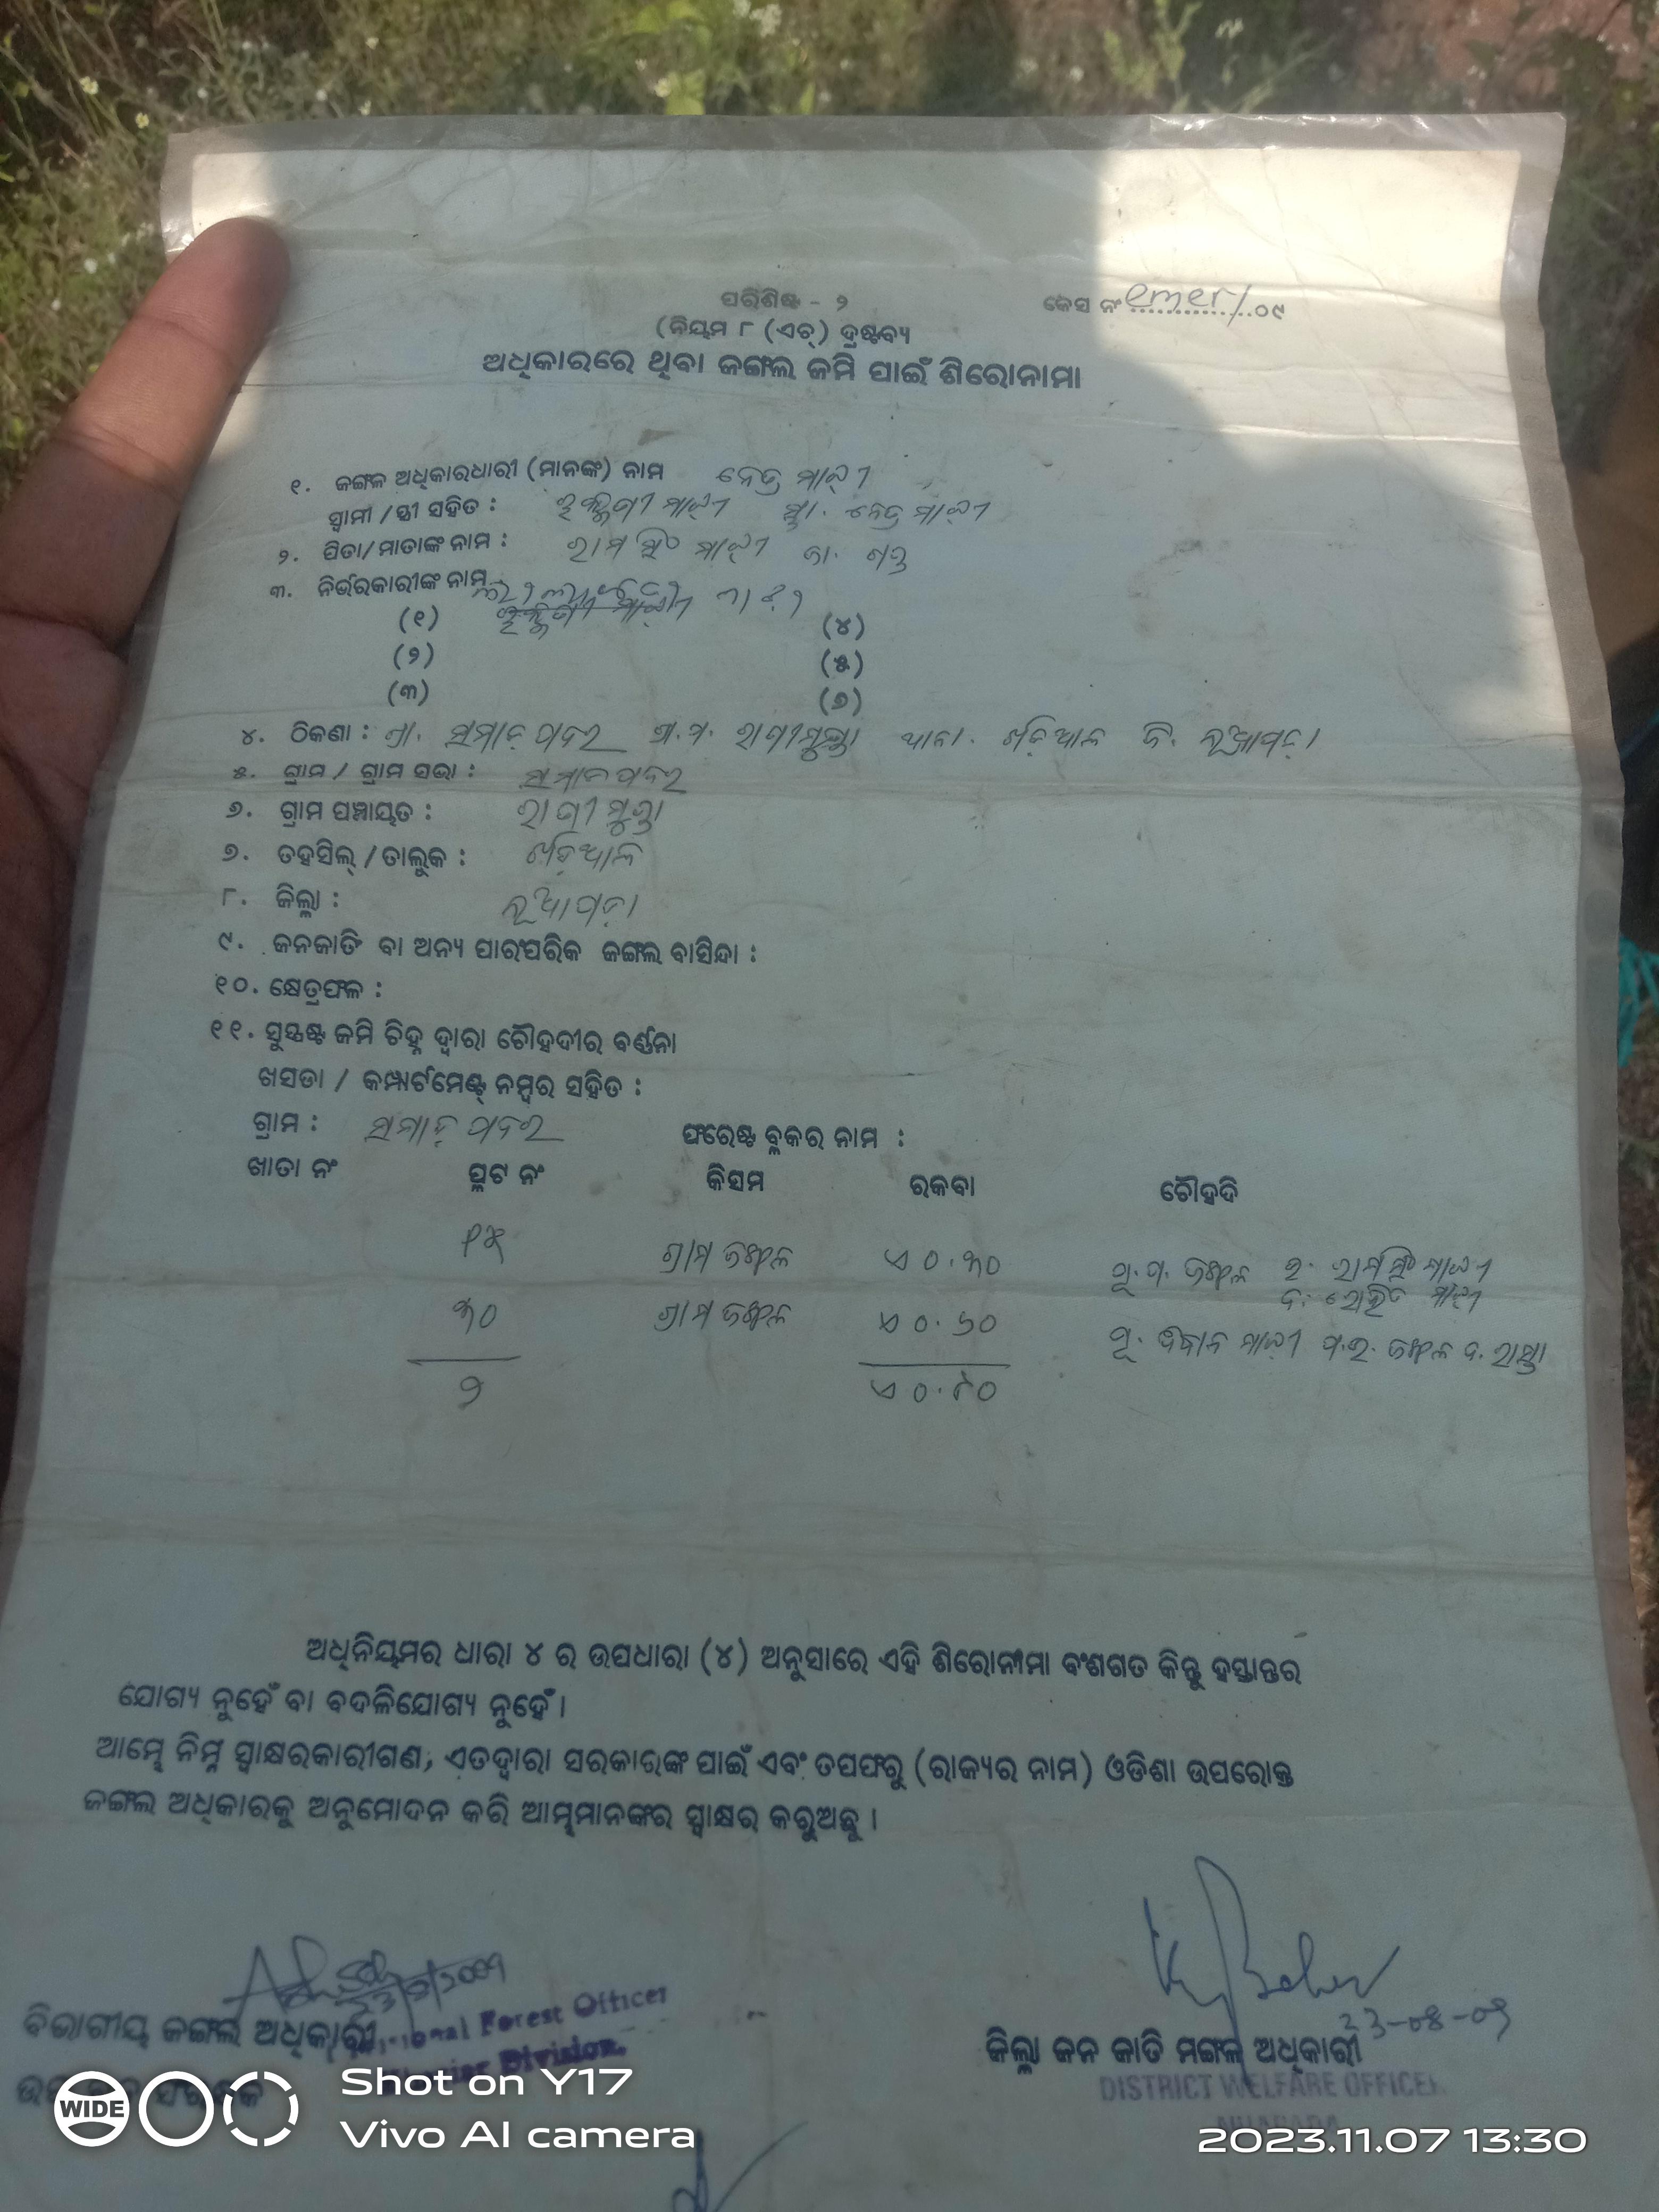 ପରିଶିଷ୍ଟ - ୨
କେସ ନଂ ............../୦୯
(ନିୟମ ୮ (ଏଚ୍) ଦ୍ରଷ୍ଟବ୍ୟ
ଅଧିକାରରେ ଥିବା ଜଙ୍ଗଲ ଜମି ପାଇଁ ଶିରୋନାମା
୧. ଜଙ୍ଗଳ ଅଧିକାରଧାରୀ (ମାନଙ୍କ) ନାମ ନେତ୍ର ମାଝୀ
ସ୍ୱାମୀ / ସ୍ତ୍ରୀ ସହିତ : ମାଝୀ ସ୍ୱା. ନେତ୍ର ମାଝୀ
୨. ପିତା/ମାତାଙ୍କ ନାମ : ରାମ ସିଂ ମାଝୀ ଜା. ଗଣ୍ଡ
୩. ନିର୍ଭରକାରୀଙ୍କ ନାମ
(୧) (୪)
(୨) (୫)
(୩) (୬)
୪. ଠିକଣା : ଗ୍ରା. ସମାନ ପଦର ଗ୍ରା.ପ. ରାଣୀମୁଣ୍ଡା ଥାନା. ଖଡ଼ିଆଳ ଜି. ନୂଆପଡ଼ା
୫. ଗ୍ରାମ / ଗ୍ରାମ ସଭା : ସମାନପଦର
୬. ଗ୍ରାମ ପଞ୍ଚାୟତ : ରାଣୀମୁଣ୍ଡା
୭. ତହସିଲ୍ / ତାଲୁକ : ଖଡ଼ିଆଳ
୮. ଜିଲ୍ଲା : ନୂଆପଡ଼ା
୯. ଜନଜାତି ବା ଅନ୍ୟ ପାରଂପରିକ ଜଙ୍ଗଲ ବାସିନ୍ଦା :
୧୦. କ୍ଷେତ୍ରଫଳ :
୧୧. ସୁସ୍ପଷ୍ଟ ଜମି ଚିହ୍ନ ଦ୍ୱାରା ଚୌହଦୀର ବର୍ଣ୍ଣନା
ଖସଡା / କମ୍ପାର୍ଟମେଣ୍ଟ୍ ନମ୍ବର ସହିତ :
ଗ୍ରାମ : ସମାନ ପଦର ଫରେଷ୍ଟ ବ୍ଲକର ନାମ :
ଖାତା ନଂ ପ୍ଳଟ ନଂ କିସମ ରକବା ଚୌହଦି
୧୫ ଗ୍ରାମ ଜଙ୍ଗଳ ଏ ୦.୩୦ ପୂ.ପ. ଜଙ୍ଗଳ ଉ. ରାମସିଂ ମାଝୀ
ଦ. ମାଝୀ
୩୦ ଗ୍ରାମ ଜଙ୍ଗଳ ଏ ୦.୬୦ ପୂ. ମାଝୀ ପ.ଉ. ଜଙ୍ଗଳ ଦ. ରାସ୍ତା
୨ ଏ ୦.୯୦
ଅଧିନିୟମର ଧାରା ୪ ର ଉପଧାରା (୪) ଅନୁସାରେ ଏହି ଶିରୋନାମା ବଂଶଗତ କିନ୍ତୁ ହସ୍ତାନ୍ତର
ଯୋଗ୍ୟ ନୁହେଁ ବା ବଦଳିଯୋଗ୍ୟ ନୁହେଁ ।
ଆମ୍ଭେ ନିମ୍ନ ସ୍ୱାକ୍ଷରକାରୀଗଣ, ଏତଦ୍ୱାରା ସରକାରଙ୍କ ପାଇଁ ଏବଂ ତପଫରୁ (ରାଜ୍ୟର ନାମ) ଓଡିଶା ଉପରୋକ୍ତ
ଜଙ୍ଗଲ ଅଧିକାରକୁ ଅନୁମୋଦନ କରି ଆମ୍ଭମାନଙ୍କର ସ୍ୱାକ୍ଷର କରୁଅଛୁ ।
ବିଭାଗୀୟ ଜଙ୍ଗଲ ଅଧିକାରୀ
Forest Officer
Division.
23-08-09
ଜିଲ୍ଲା ଜନ ଜାତି ମଙ୍ଗଳ ଅଧିକାରୀ
DISTRICT WELFARE OFFICER
NUAPADA
WIDE
Shot on Y17
Vivo AI camera
2023.11.07 13:30